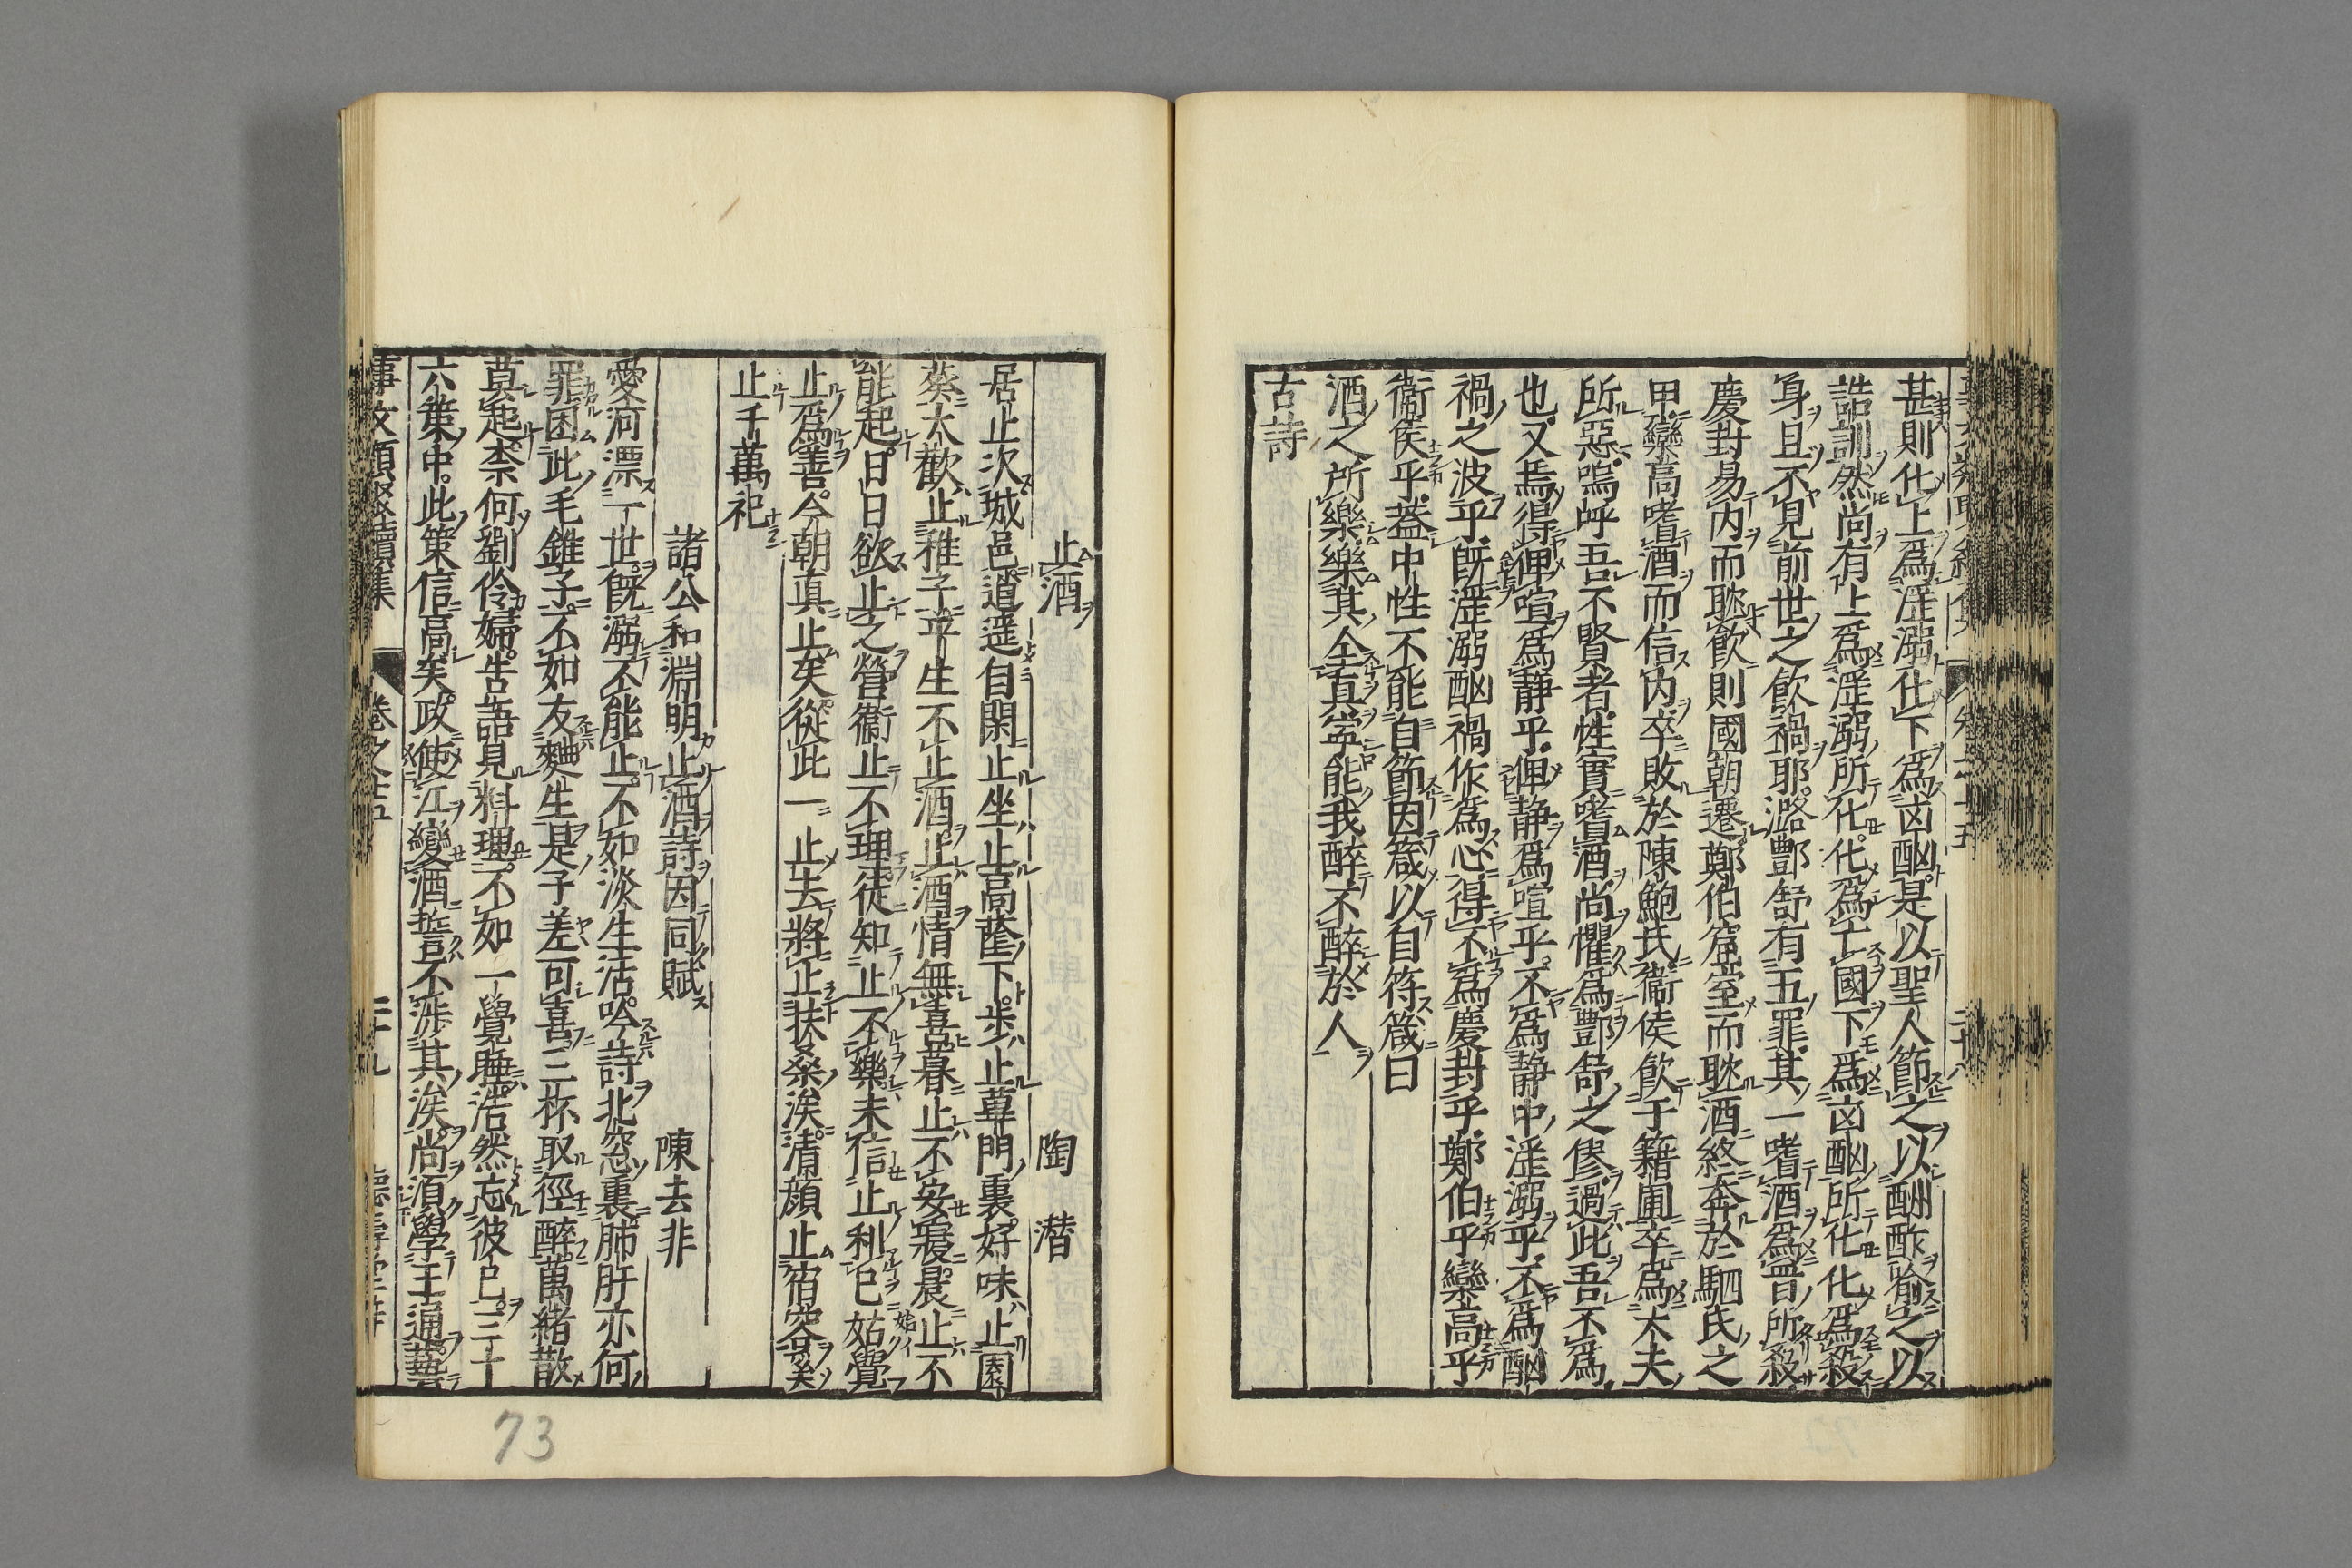 甚則化上爲淫溺化下爲凶酗是以聖人節之以酬酢喻之以
誥訓然尚有上爲淫溺所化化爲亡國下爲凶酗所化化爲殺
身且不見前世之飲禍耶潞酆舒有五罪其一嗜酒爲晉所殺
慶封易內而耽飲則國朝遷鄭伯窟室而耽酒終奔於駟氏之
甲欒高嗜酒而信內卒敗於陳鮑氏衞侯飲于籍圃卒爲大夫
所惡嗚呼吾不賢者性實嗜酒尚懼爲酆舒之僇過此吾不爲
也又焉得俾喧爲靜乎俾靜爲喧乎不爲靜中淫溺乎不爲酗
禍之波乎旣淫溺酗禍作爲心得不爲慶封乎鄭伯乎欒高乎
衞侯乎蓋中性不能自節因箴以自符箴曰
酒之所樂樂其全真寧能我醉不醉於人
古詩
止酒 陶潛
居止次城邑逍遥自閑止坐止高蔭下步止蓽門裏好味止園
葵大歡止稚子平生不止酒止酒情無喜暮止不安寢晨止不
能起日日欲止之營衞止不理徒知止不樂未信止利已姑覺
止爲善今朝真止矣從此一止去將止扶桑涘清顔止宿容奚
止千萬祀
諸公和淵明止酒詩因同賦 陳去非
愛河漂一世旣溺不能止不如淡生活吟詩北窓裏肺肝亦何
罪困此毛錐子不如友麯生是子差可喜三杯取徑醉萬緒散
莫起柰何劉伶婦苦語見料理不如一覺睡浩然忘彼已三十
六策中此策信高矣政使江變酒誓不涉其涘尚須學王通藝
事文類聚續集 卷之十五 二十九
73